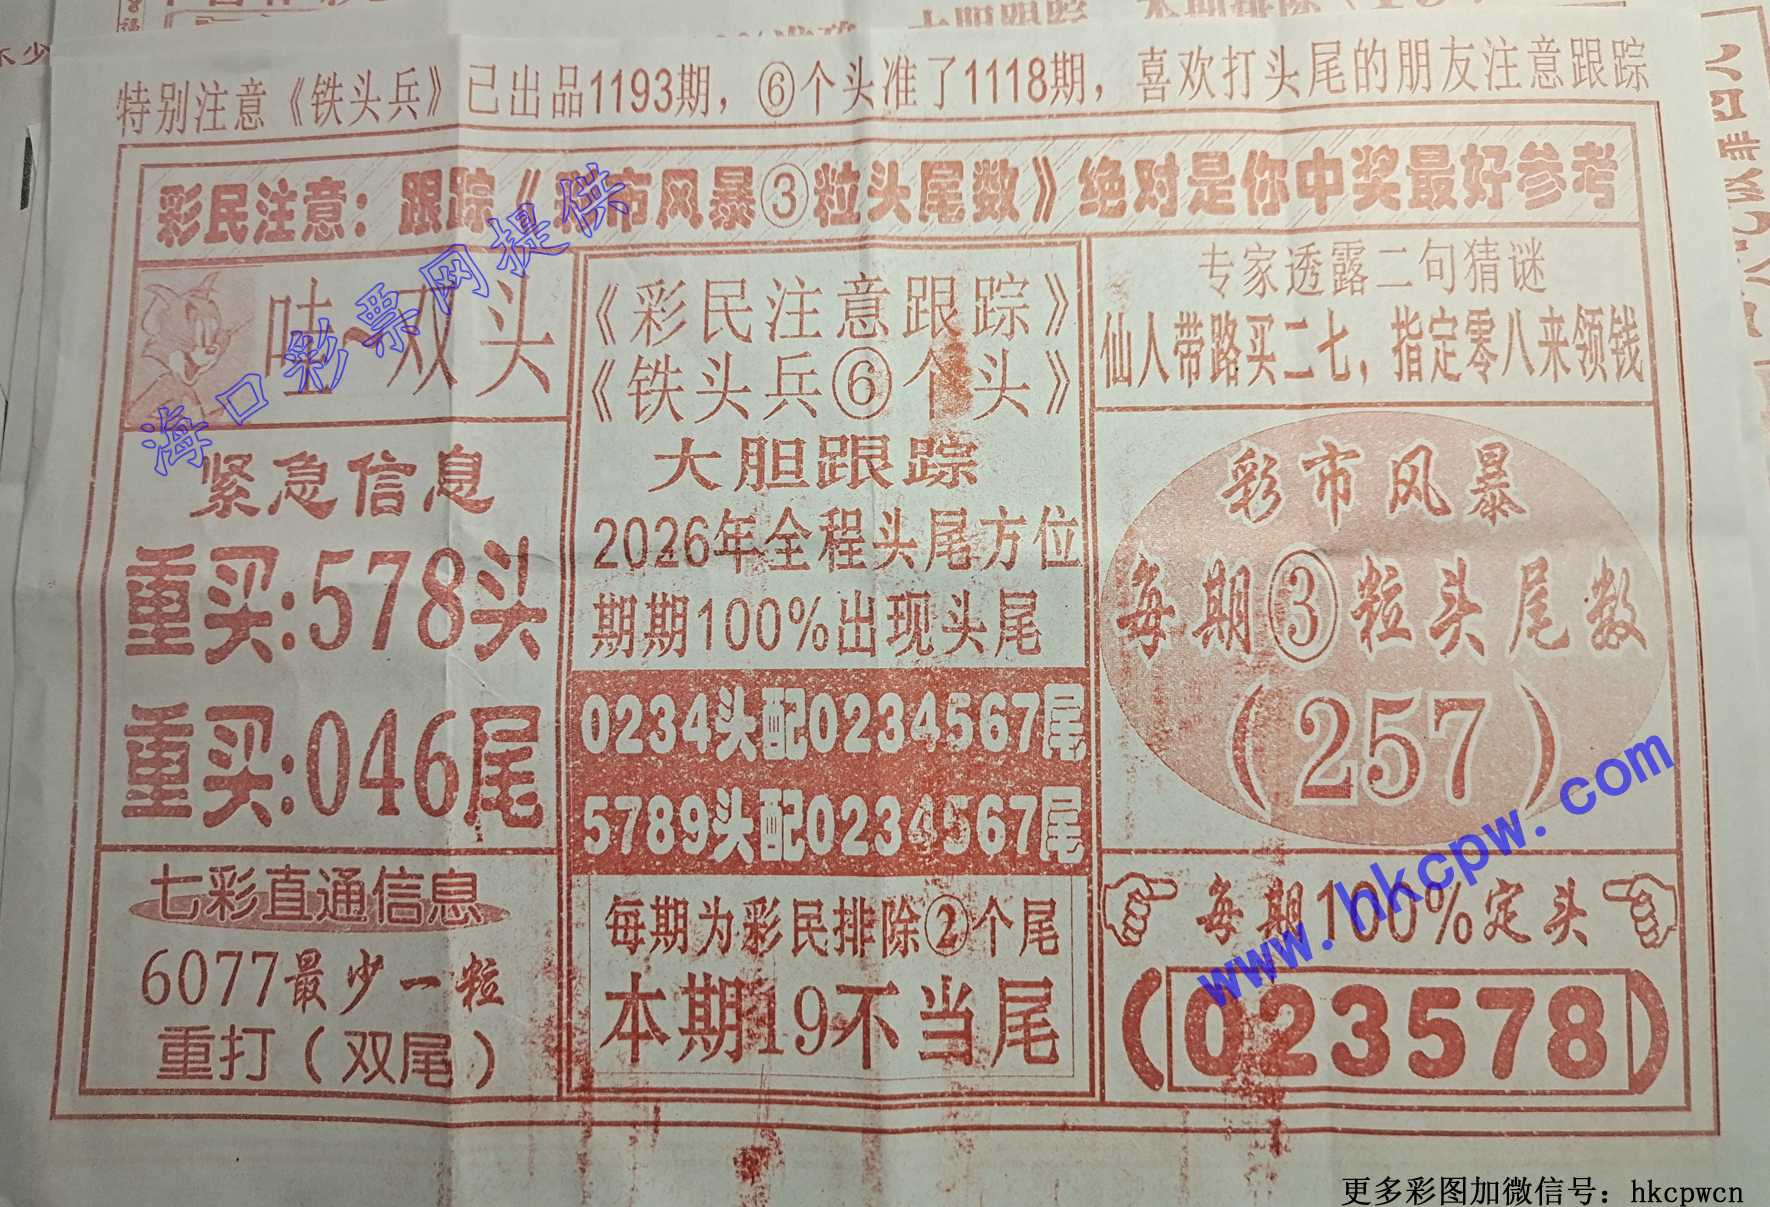 特别注意《铁头兵》已出品1193期，⑥个头准了1118期，喜欢打头尾的朋友注意跟踪
彩民注意：跟踪《彩市风暴③粒头尾数》绝对是你中奖最好参考
哇~双头
紧急信息
重买:578头
重买:046尾
七彩直通信息
6077最少一粒
重打（双尾）
《彩民注意跟踪》
《铁头兵⑥个头》
大胆跟踪
2026年全程头尾方位
期期100%出现头尾
0234头配0234567尾
5789头配0234567尾
每期为彩民排除②个尾
本期19不当尾
专家透露二句猜谜
仙人带路买二七，指定零八来领钱
彩市风暴
每期③粒头尾数
（257）
每期100%定头
（023578）
海口彩票网提供
www.hkcpw.com
更多彩图加微信号：hkcpwcn